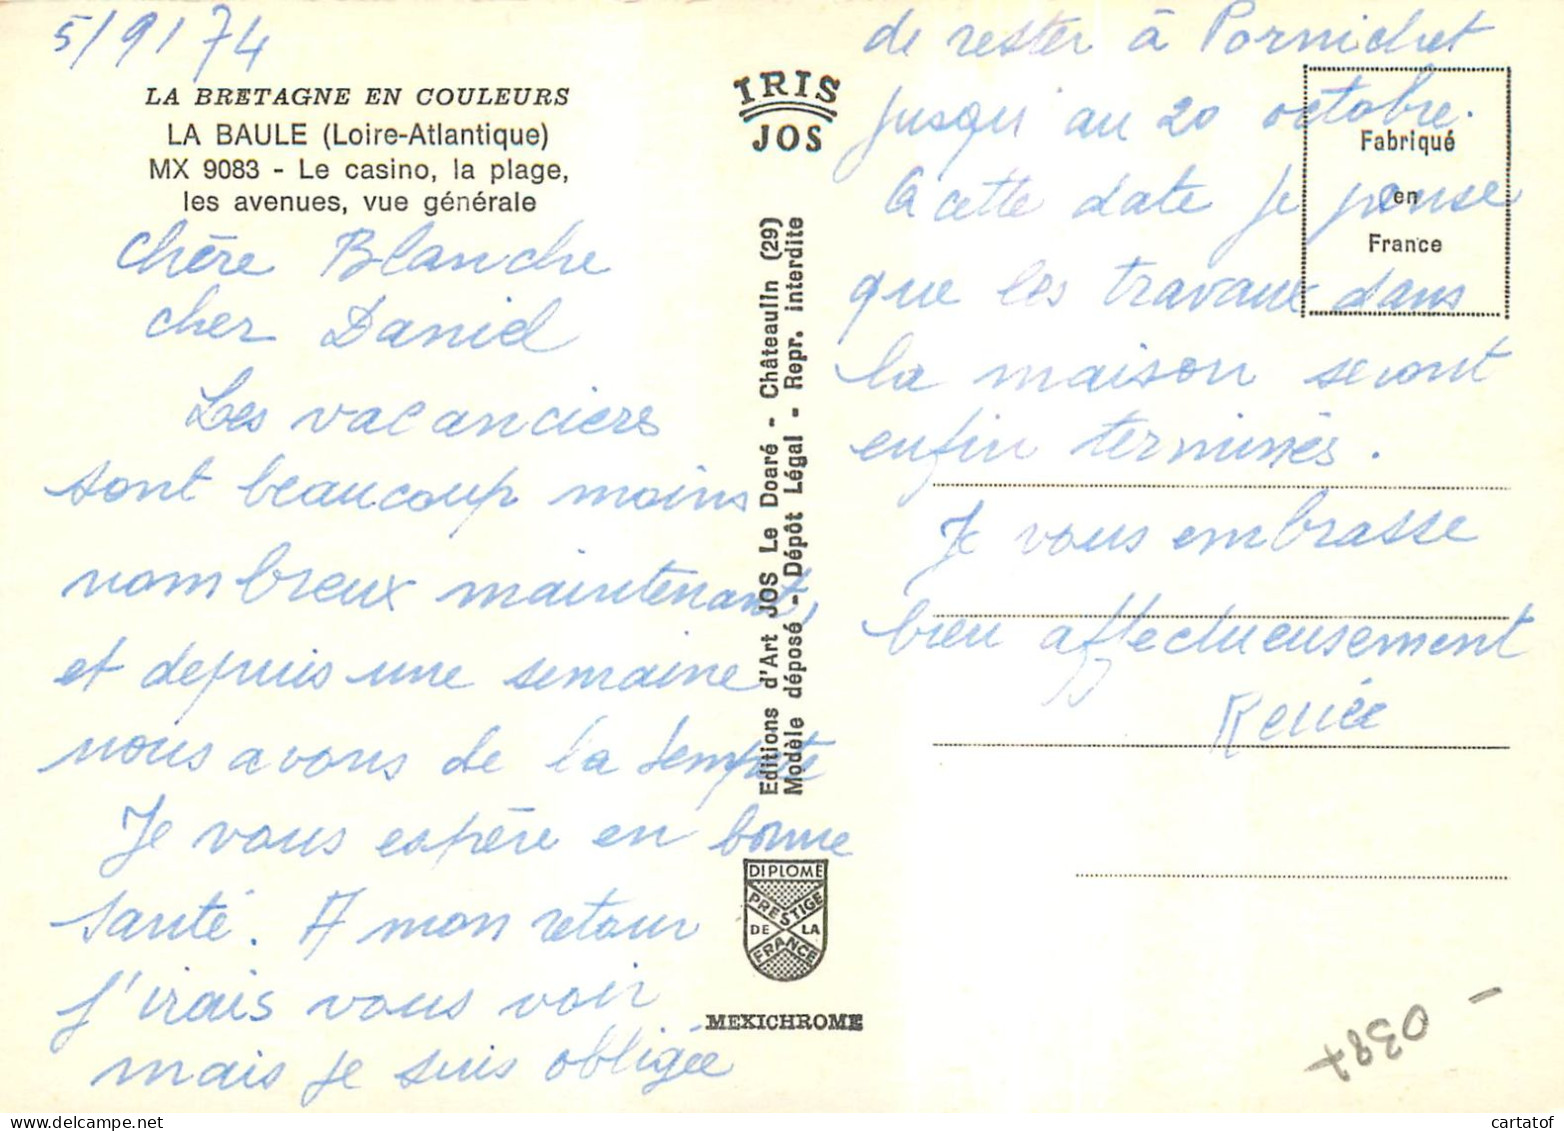 5/9/74
LA BRETAGNE EN COULEURS
LA BAULE (Loire-Atlantique)
MX 9083 - Le casino, la plage,
les avenues, vue générale
chère Blanche
cher Daniel
Les vacanciers
sont beaucoup moins
nombreux maintenant,
et depuis une semaine
nous avons de la tempete
Je vous espère en bonne
santé. A mon retour
j'irais vous voir
mais je suis obligée
IRIS
JOS
Editions d'Art JOS Le Doaré - Châteaulin (29)
Modèle déposé - Dépôt Légal - Repr. interdite
DIPLOME
PRESTIGE
DE LA
FRANCE
MEXICHROME
de rester à Pornichet
jusqu'au 20 octobre.
A cette date je pense
que les travaux dans
la maison seront
enfin terminés.
Je vous embrasse
bien affectueusement
Renée
Fabriqué
en
France
0387
cartatof